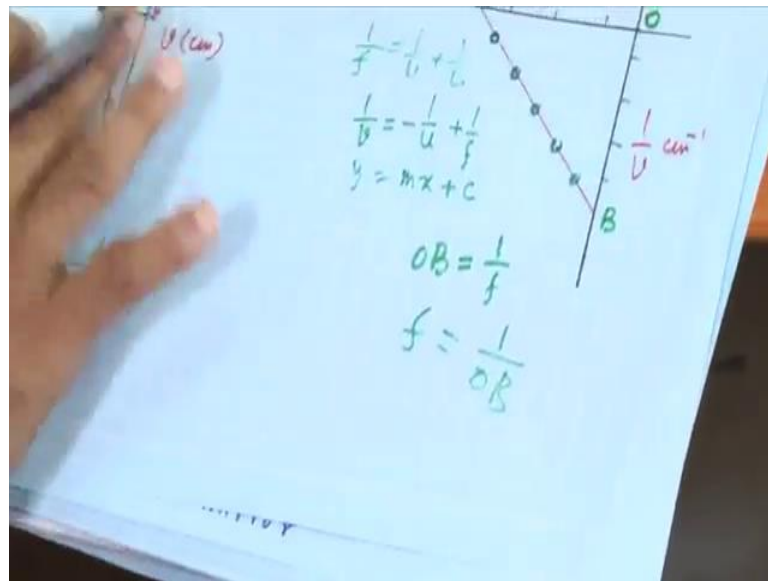 v (cm)
1/f = 1/v + 1/u
1/v = - 1/u + 1/f
y = mx + c
OB = 1/f
f = 1/OB
O
1/v cm⁻¹
B